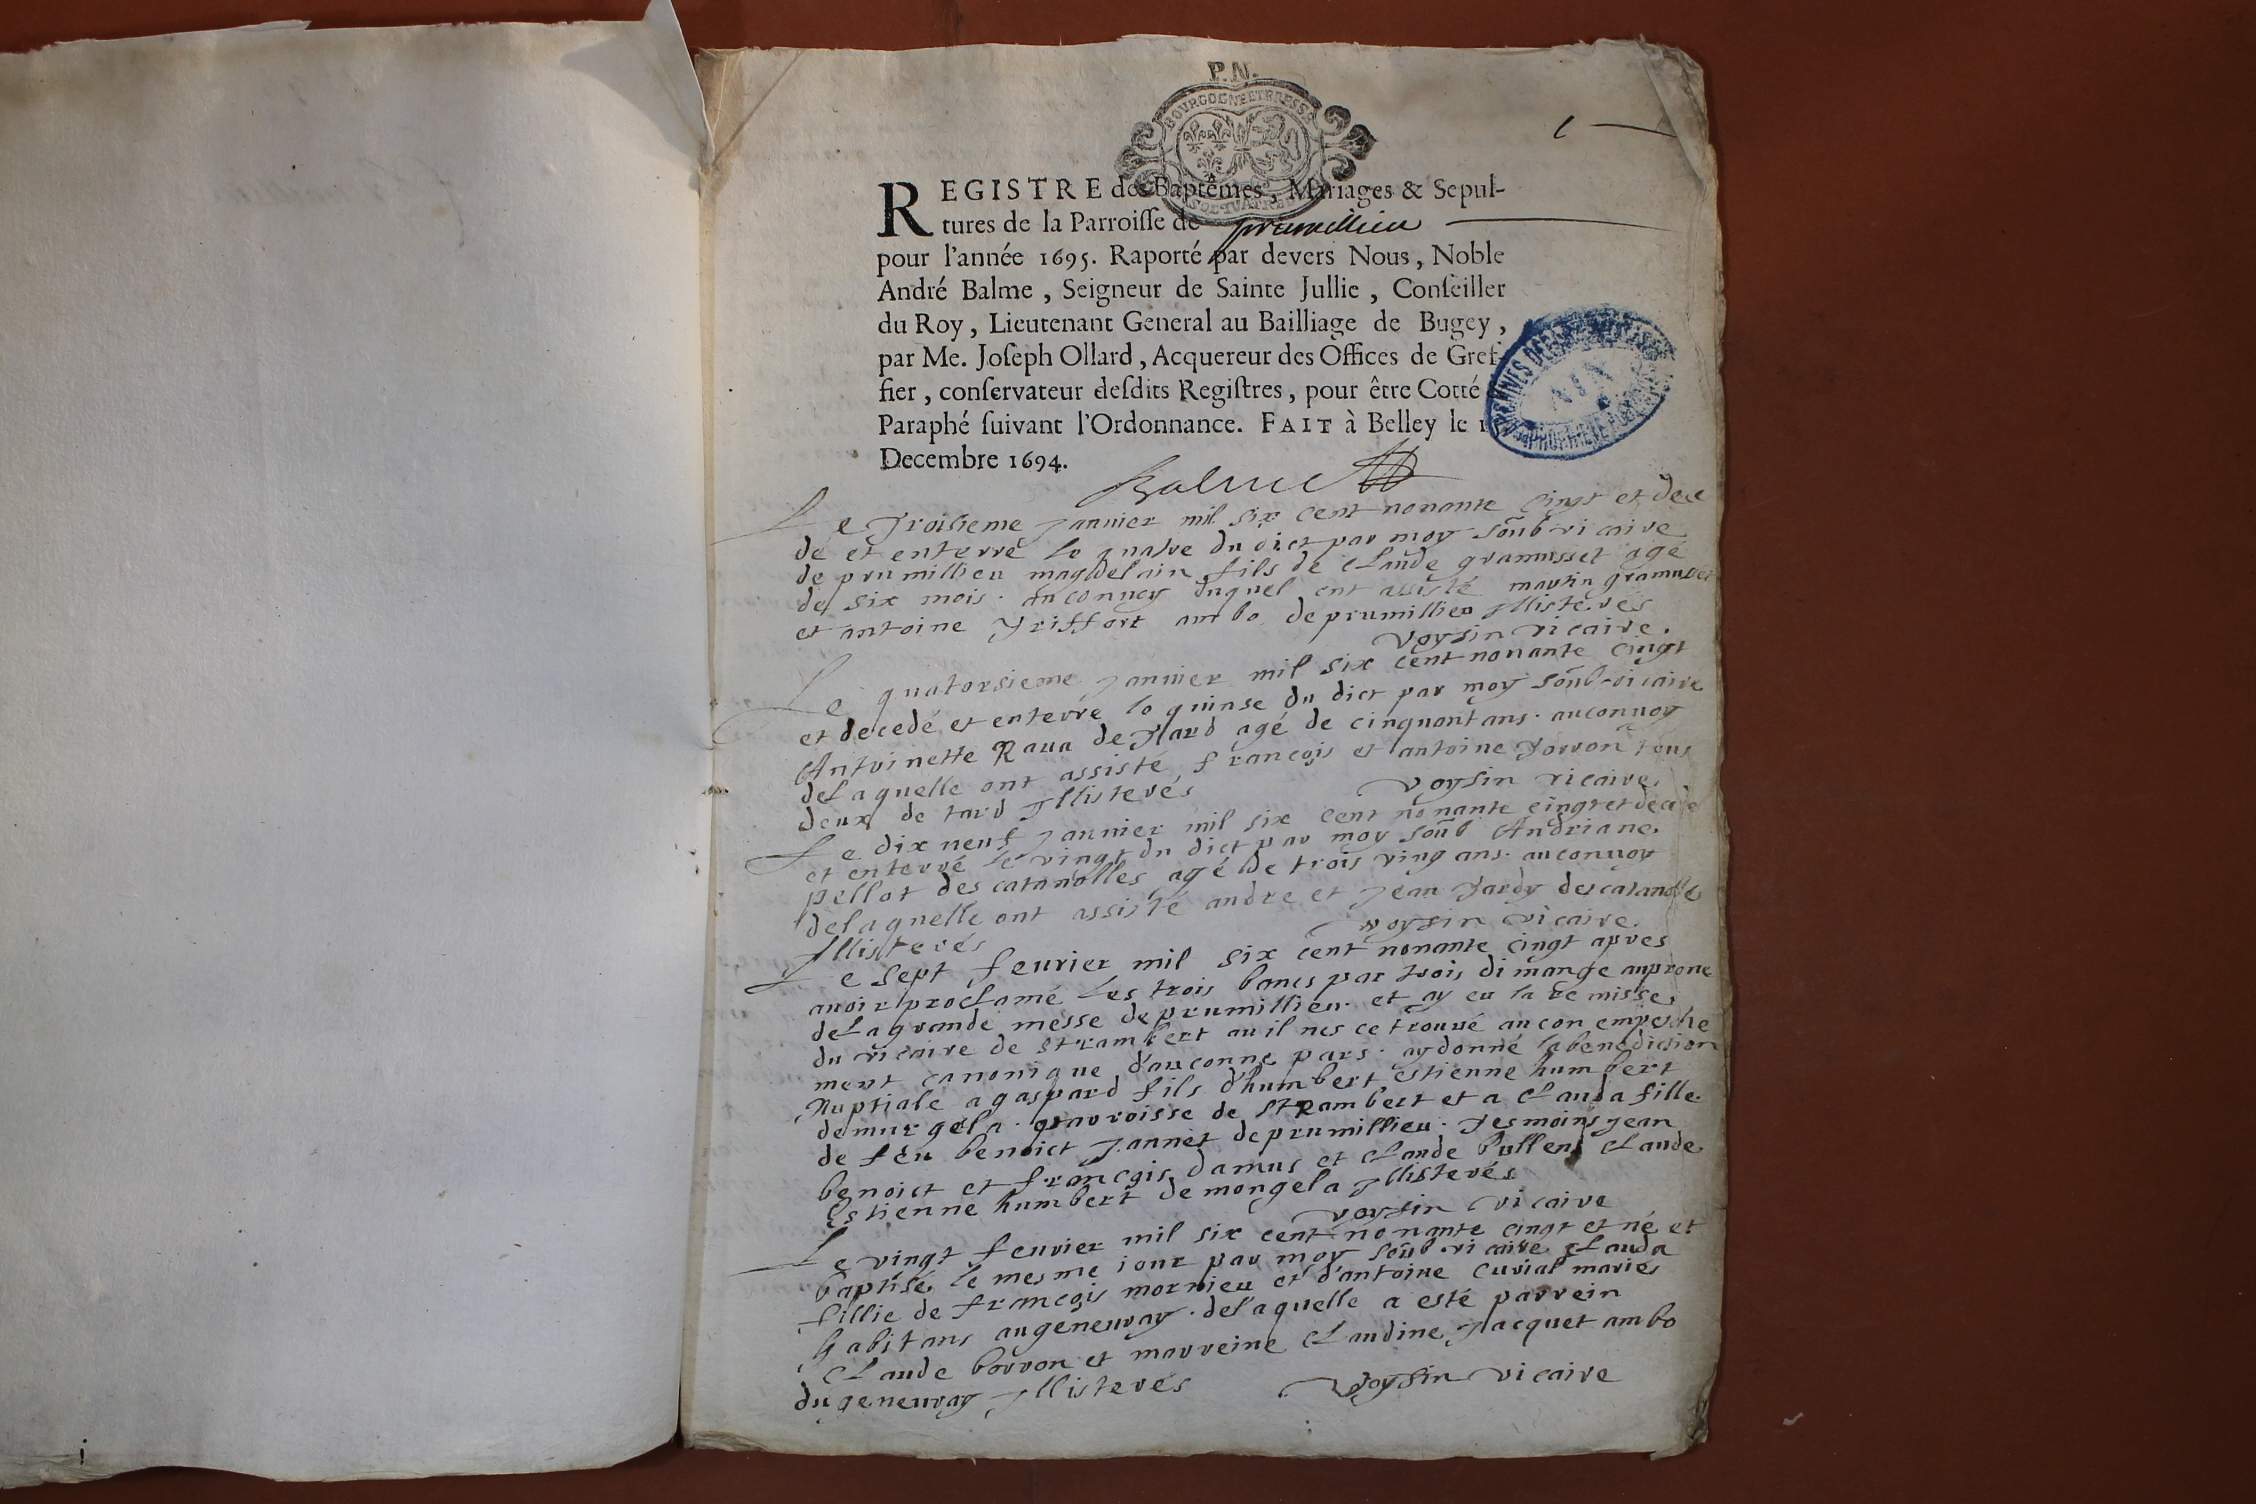 P.N.
BOURGOGNE ET BRESSE
REGISTRE des Baptêmes, Mariages & Sepul-
tures de la Parroisse de prumillieu
pour l'année 1695. Raporté par devers Nous, Noble
André Balme, Seigneur de Sainte Jullie, Conseiller
du Roy, Lieutenant General au Bailliage de Bugey,
par Me. Joseph Ollard, Acquereur des Offices de Gref-
fier, conservateur desdits Registres, pour être Cotté
Paraphé suivant l'Ordonnance. FAIT à Belley le
Decembre 1694.
Balme
Le Troisieme Janvier mil six cent nonante cingt et dece
de et enterré le quatre du dict par moy soub vicaire
de prumillieu magdelain fils de Claude gramusset agé
de six mois. au convoy duquel ont assisté martin gramusset
et antoine Triffort ambo de prumillieu Jllisterés
Voysin vicaire.
Le quatorsieme Janvier mil six cent nonante cingt
et decedé et enterre le quinse du dict par moy soub-vicaire
Antoinette Rava de Tard agé de cinquant ans. au convoy
de Laquelle ont assisté françois et antoine Torron tous
deux de tard Jllisterés Voysin vicaire.
Le dix neuf Janvier mil six cent nonante cingt et decede
et enterré le vingt du dict par moy soub Andriane
pellot des catanolles agé de trois ving ans. au convoy
de laquelle ont assisté andre et Jean Tardy des catanolles
Jllisterés voysin vicaire.
Le sept fevrier mil six cent nonante cingt apres
avoir proclamé Les trois bancs par trois dimange au prone
de La grande messe de prumillieu. et ay eu la remisse
du vicaire de st rambert au il nes ce trouvé aucon empesche
ment canonique d'auconne pars. ay donné la benediction
Nuptiale a gaspard fils d'humbert estienne humbert
de murgela. parroisse de st Rambert et a Clauda fille
de feu benoict Jannet de prumillieu. Tesmoins Jean
benoict et françois damus et Claude bullend Claude
Estienne humbert de mongela Jllisterés
voysin vicaire
Le vingt fevrier mil six cent nonante cingt et né et
baptisé le mesme jour par moy soub vicaire Clauda
fillie de françois mornieu et d'antoine Curial mariés
habitans au genevray. de laquelle a esté parrein
Claude borron et marreine Claudine Jacquet ambo
du genevray Jllisterés Voysin vicaire